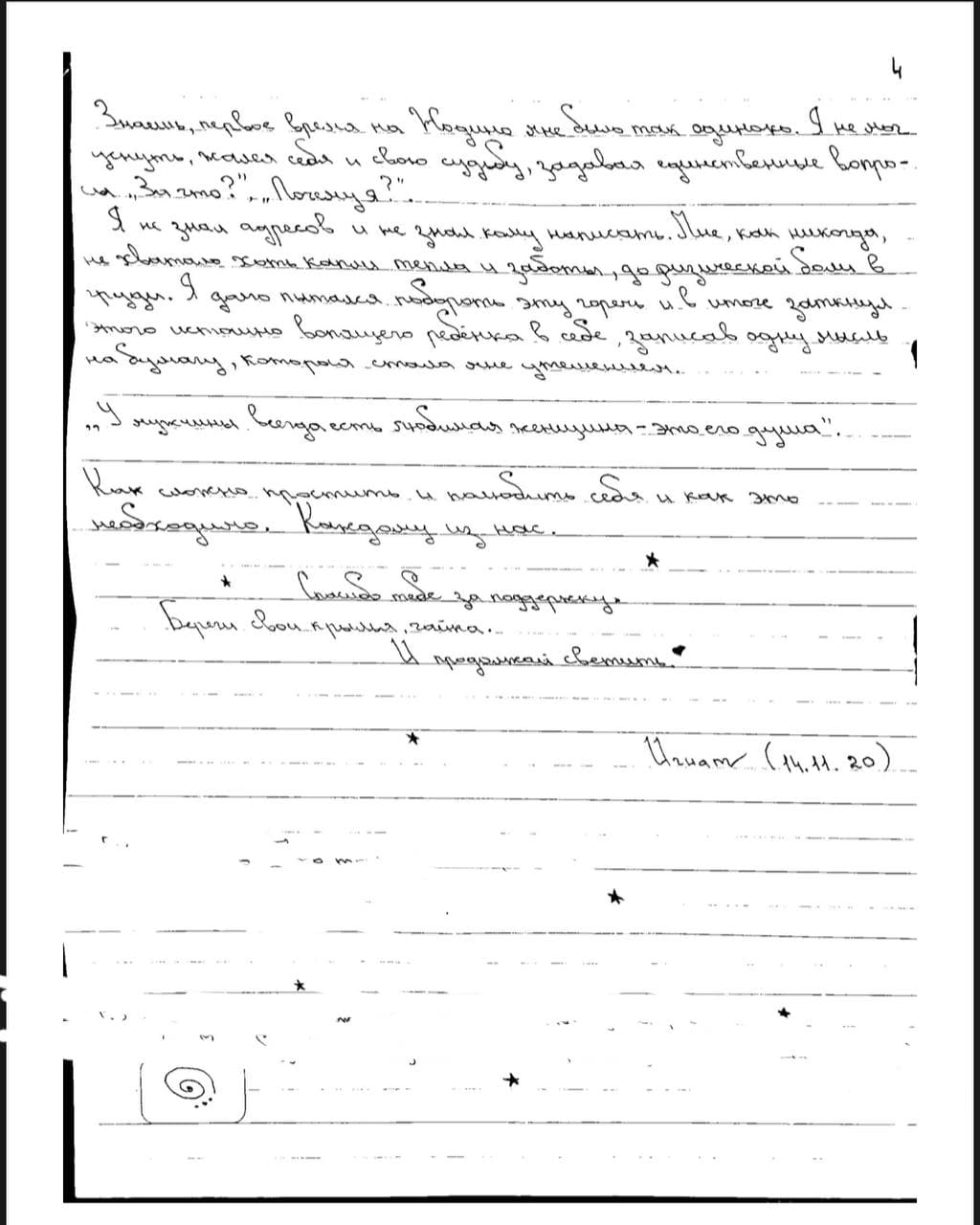 4
Знаешь, первое время на Жодино мне было так одиноко. Я не мог
уснуть, жалея себя и свою судьбу, задавая единственные вопро-
сы „За что?", „Почему я?".
Я не знал адресов и не знал кому написать. Мне, как никогда,
не хватало хоть капли тепла и заботы, до физической боли в
груди. Я долго пытался побороть эту горечь и в итоге заткнул
этого истошно вопящего ребёнка в себе, записав одну мысль
на бумагу, которая стала мне утешением.
„У мужчины всегда есть любимая женщина - это его душа".
Как сложно простить и полюбить себя и как это
необходимо. Каждому из нас.
Спасибо тебе за поддержку.
Береги свои крылья, чайка.
И продолжай светить.
Игнат (14.11.20)